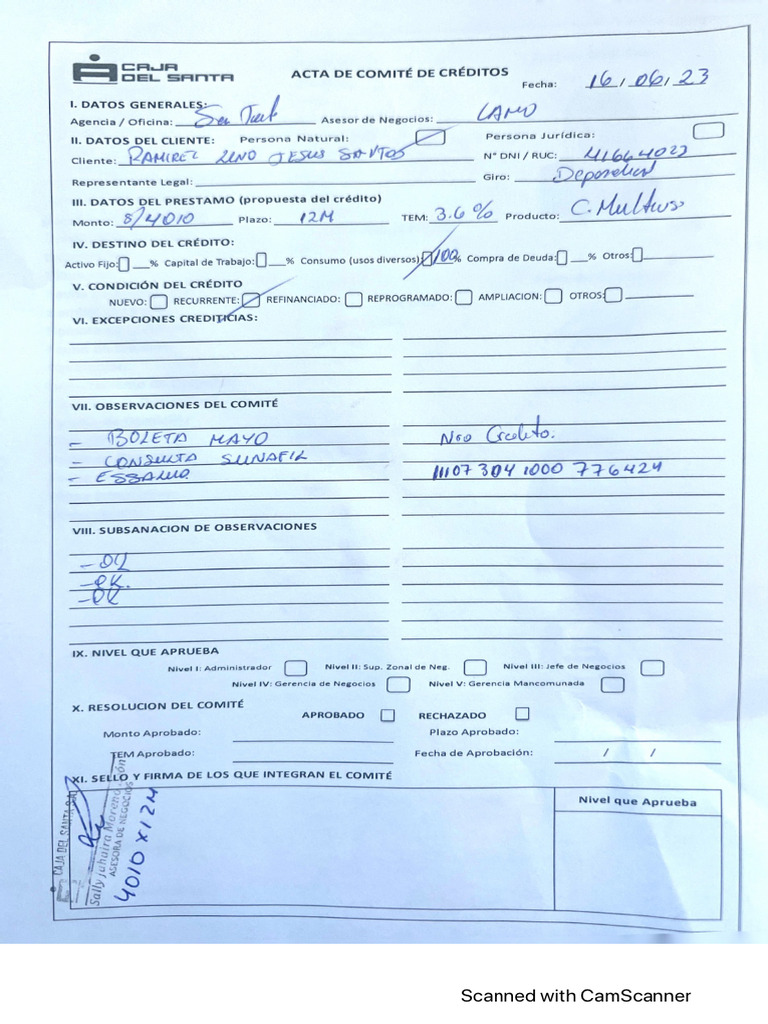 CAJA
DEL SANTA
ACTA DE COMITÉ DE CRÉDITOS
Fecha: 16/06/23
I. DATOS GENERALES:
Agencia / Oficina: Asesor de Negocios:
II. DATOS DEL CLIENTE: Persona Natural: Persona Jurídica:
Cliente: RAMIREZ JESUS SANTOS N° DNI / RUC: 41664023
Representante Legal: Giro: Dependient
III. DATOS DEL PRESTAMO (propuesta del crédito)
Monto: S/4010 Plazo: 12M TEM: 3.6% Producto: C. Multiuso
IV. DESTINO DEL CRÉDITO:
Activo Fijo: __% Capital de Trabajo: __% Consumo (usos diversos) 100% Compra de Deuda: __% Otros:
V. CONDICIÓN DEL CRÉDITO
NUEVO: RECURRENTE: REFINANCIADO: REPROGRAMADO: AMPLIACION: OTROS:
VI. EXCEPCIONES CREDITICIAS:
VII. OBSERVACIONES DEL COMITÉ
- BOLETA MAYO Nro Credito.
- CONSULTA SUNAFIL
- ESSALUD 111073041000776424
VIII. SUBSANACION DE OBSERVACIONES
- OK
- OK.
- OK
IX. NIVEL QUE APRUEBA
Nivel I: Administrador Nivel II: Sup. Zonal de Neg. Nivel III: Jefe de Negocios
Nivel IV: Gerencia de Negocios Nivel V: Gerencia Mancomunada
X. RESOLUCION DEL COMITÉ
APROBADO RECHAZADO
Monto Aprobado: Plazo Aprobado:
TEM Aprobado: Fecha de Aprobación: / /
XI. SELLO Y FIRMA DE LOS QUE INTEGRAN EL COMITÉ
Nivel que Aprueba
CAJA DEL SANTA S.A.
Sally Jahaira Moreno
ASESORA DE NEGOCIOS
4010 X 12M
Scanned with CamScanner